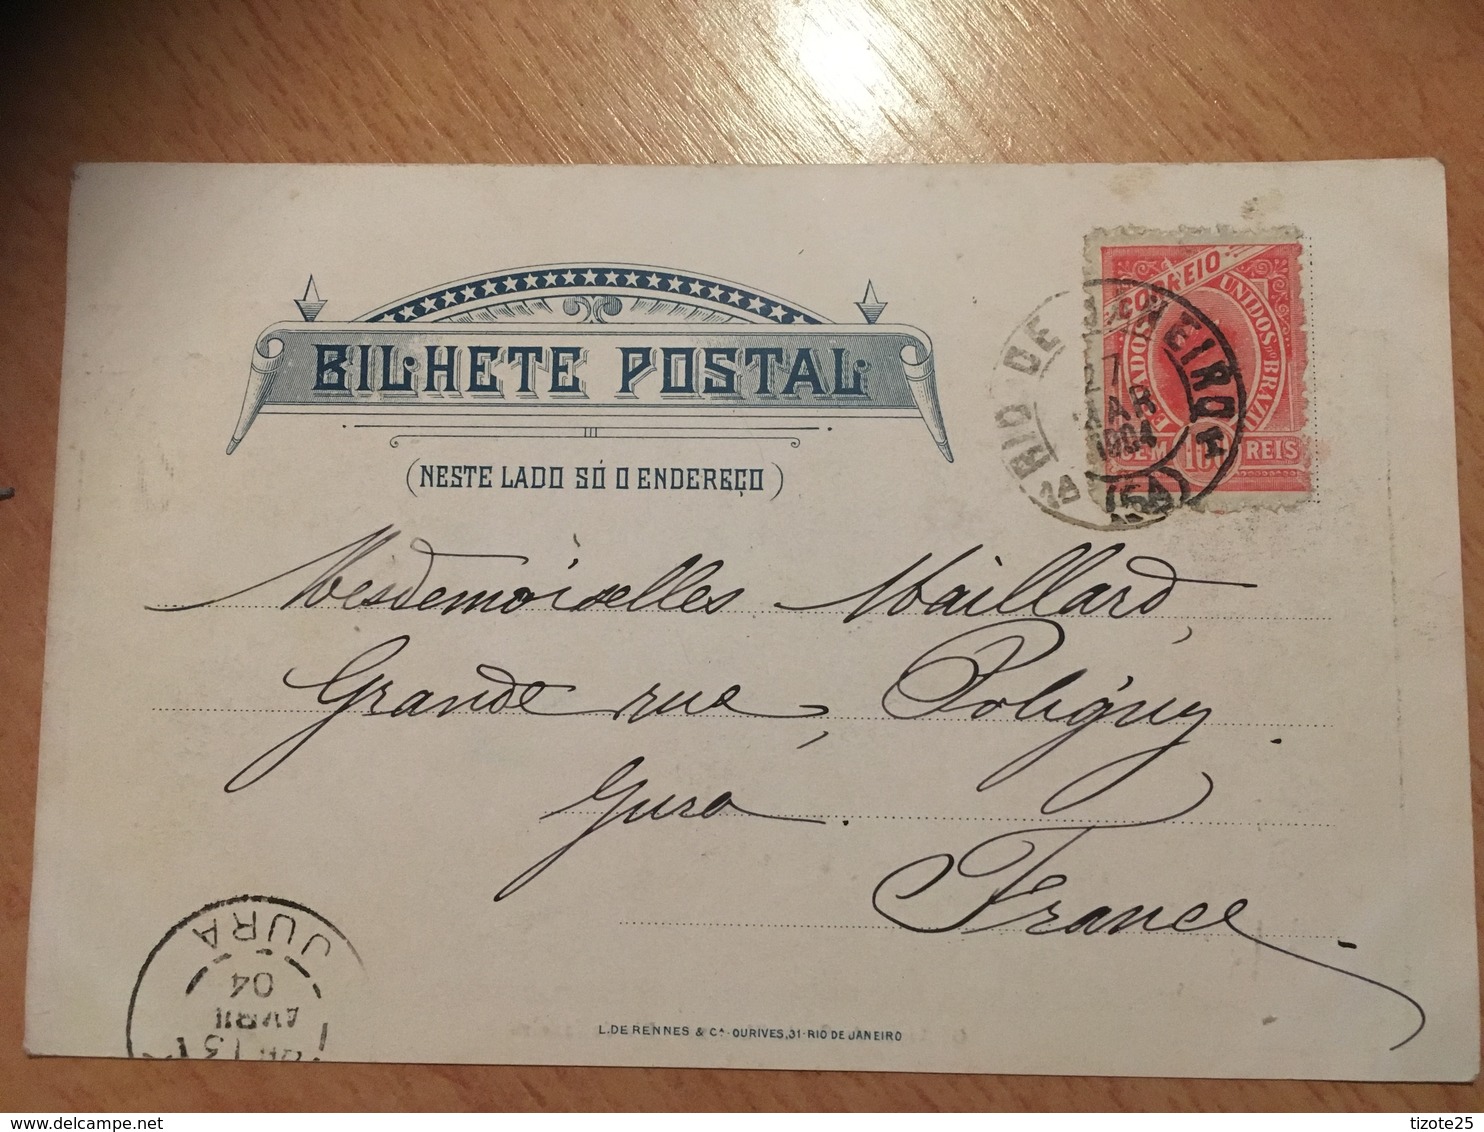 BILHETE POSTAL
(NESTE LADO SÓ O ENDEREÇO)
CORREIO
ESTADOS UNIDOS DO BRAZIL
CEM 100 REIS
RIO DE JANEIRO
27
MAR
1904
(5A)
Mesdemoiselles Maillard,
Grande rue, Poligny.
Jura.
France.
JURA
04
AVRIL
L. DE RENNES & Cª-OURIVES, 31-RIO DE JANEIRO
tizote25